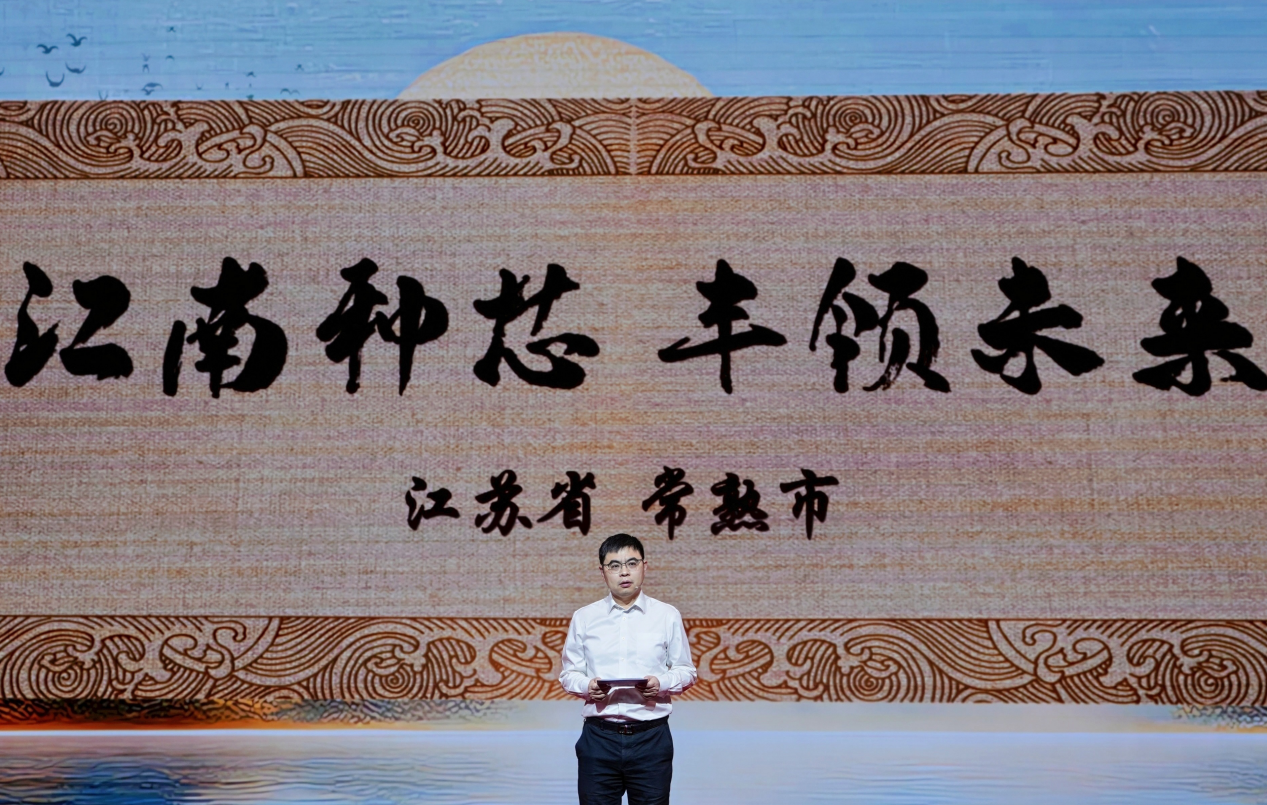 江南种芯 丰领未来
江苏省 常熟市